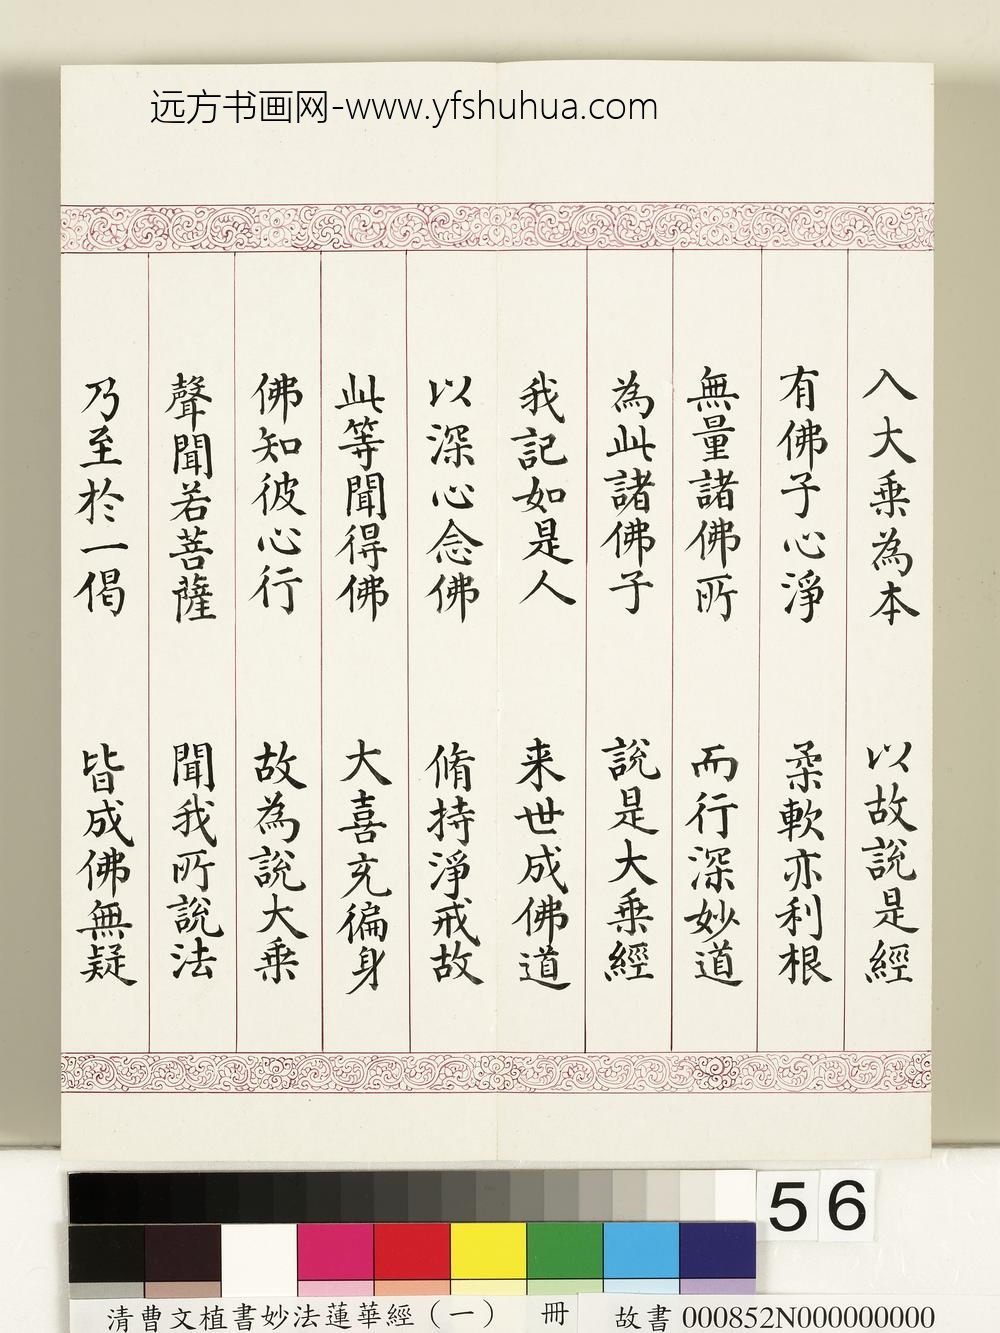 远方书画网-www.yfshuhua.com
入大乗為本 以故說是經
有佛子心淨 柔軟亦利根
無量諸佛所 而行深妙道
為此諸佛子 說是大乗經
我記如是人 来世成佛道
以深心念佛 脩持淨戒故
此等聞得佛 大喜充徧身
佛知彼心行 故為說大乗
聲聞若菩薩 聞我所說法
乃至於一偈 皆成佛無疑
56
清曹文植書妙法蓮華經(一) 冊 故書000852N000000000